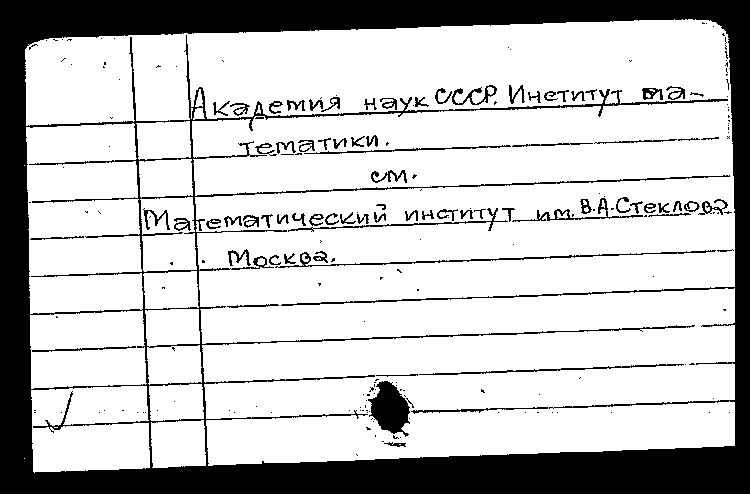 Академия наук СССР. Институт ма-
тематики.
см.
Математический институт им. В.А. Стеклова
Москва.